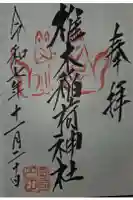 奉拝
雄木稲荷神社
令和七年十一月二十日